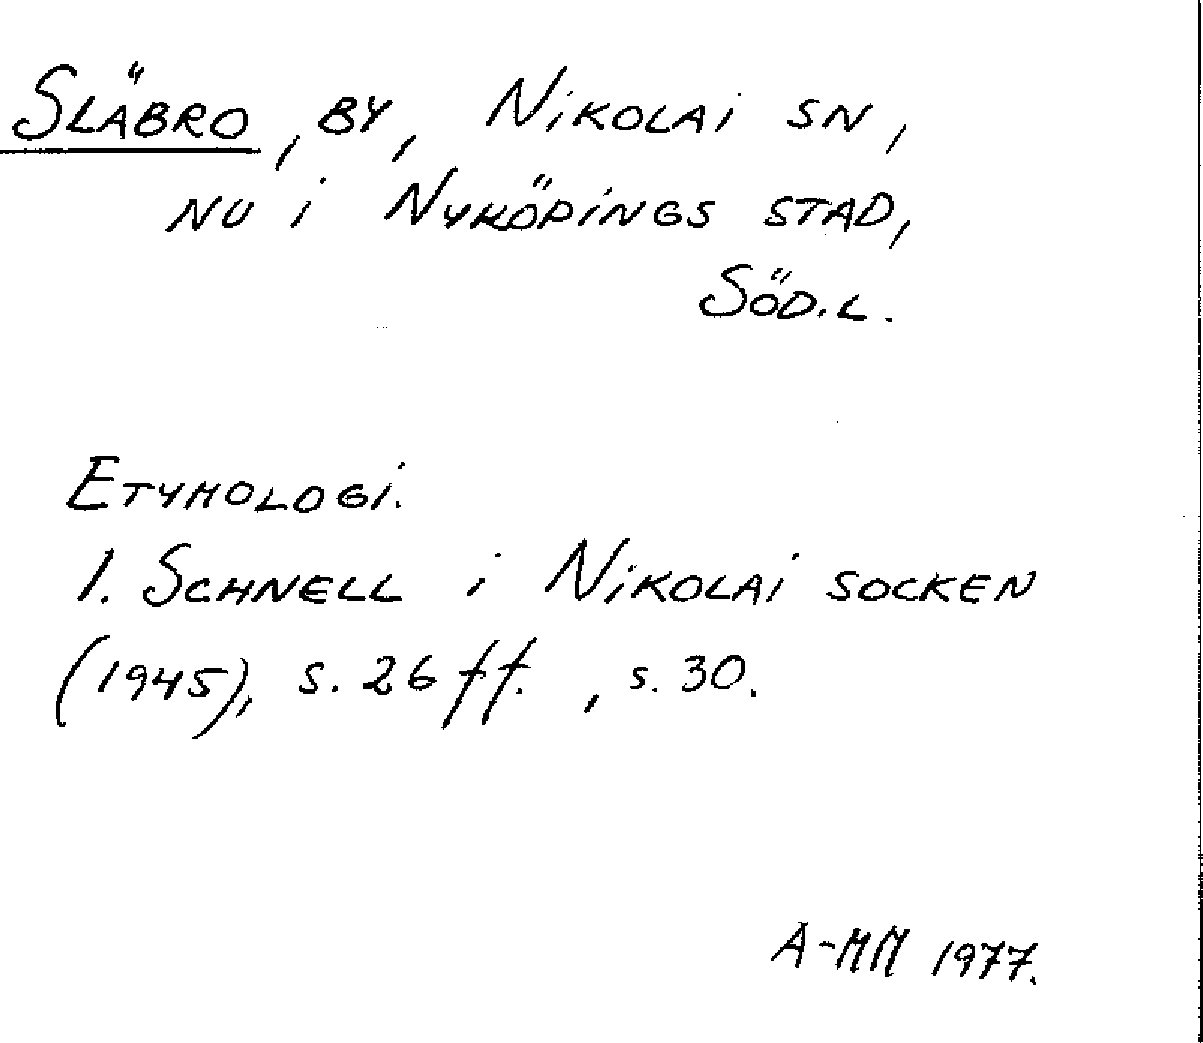 SLÄBRO, BY, NIKOLAI SN,
NU I NYKÖPINGS STAD,
SÖD.L.
ETYMOLOGI.
I. SCHNELL I NIKOLAI SOCKEN
(1945), s. 26 ff., s. 30.
A-MM 1977.